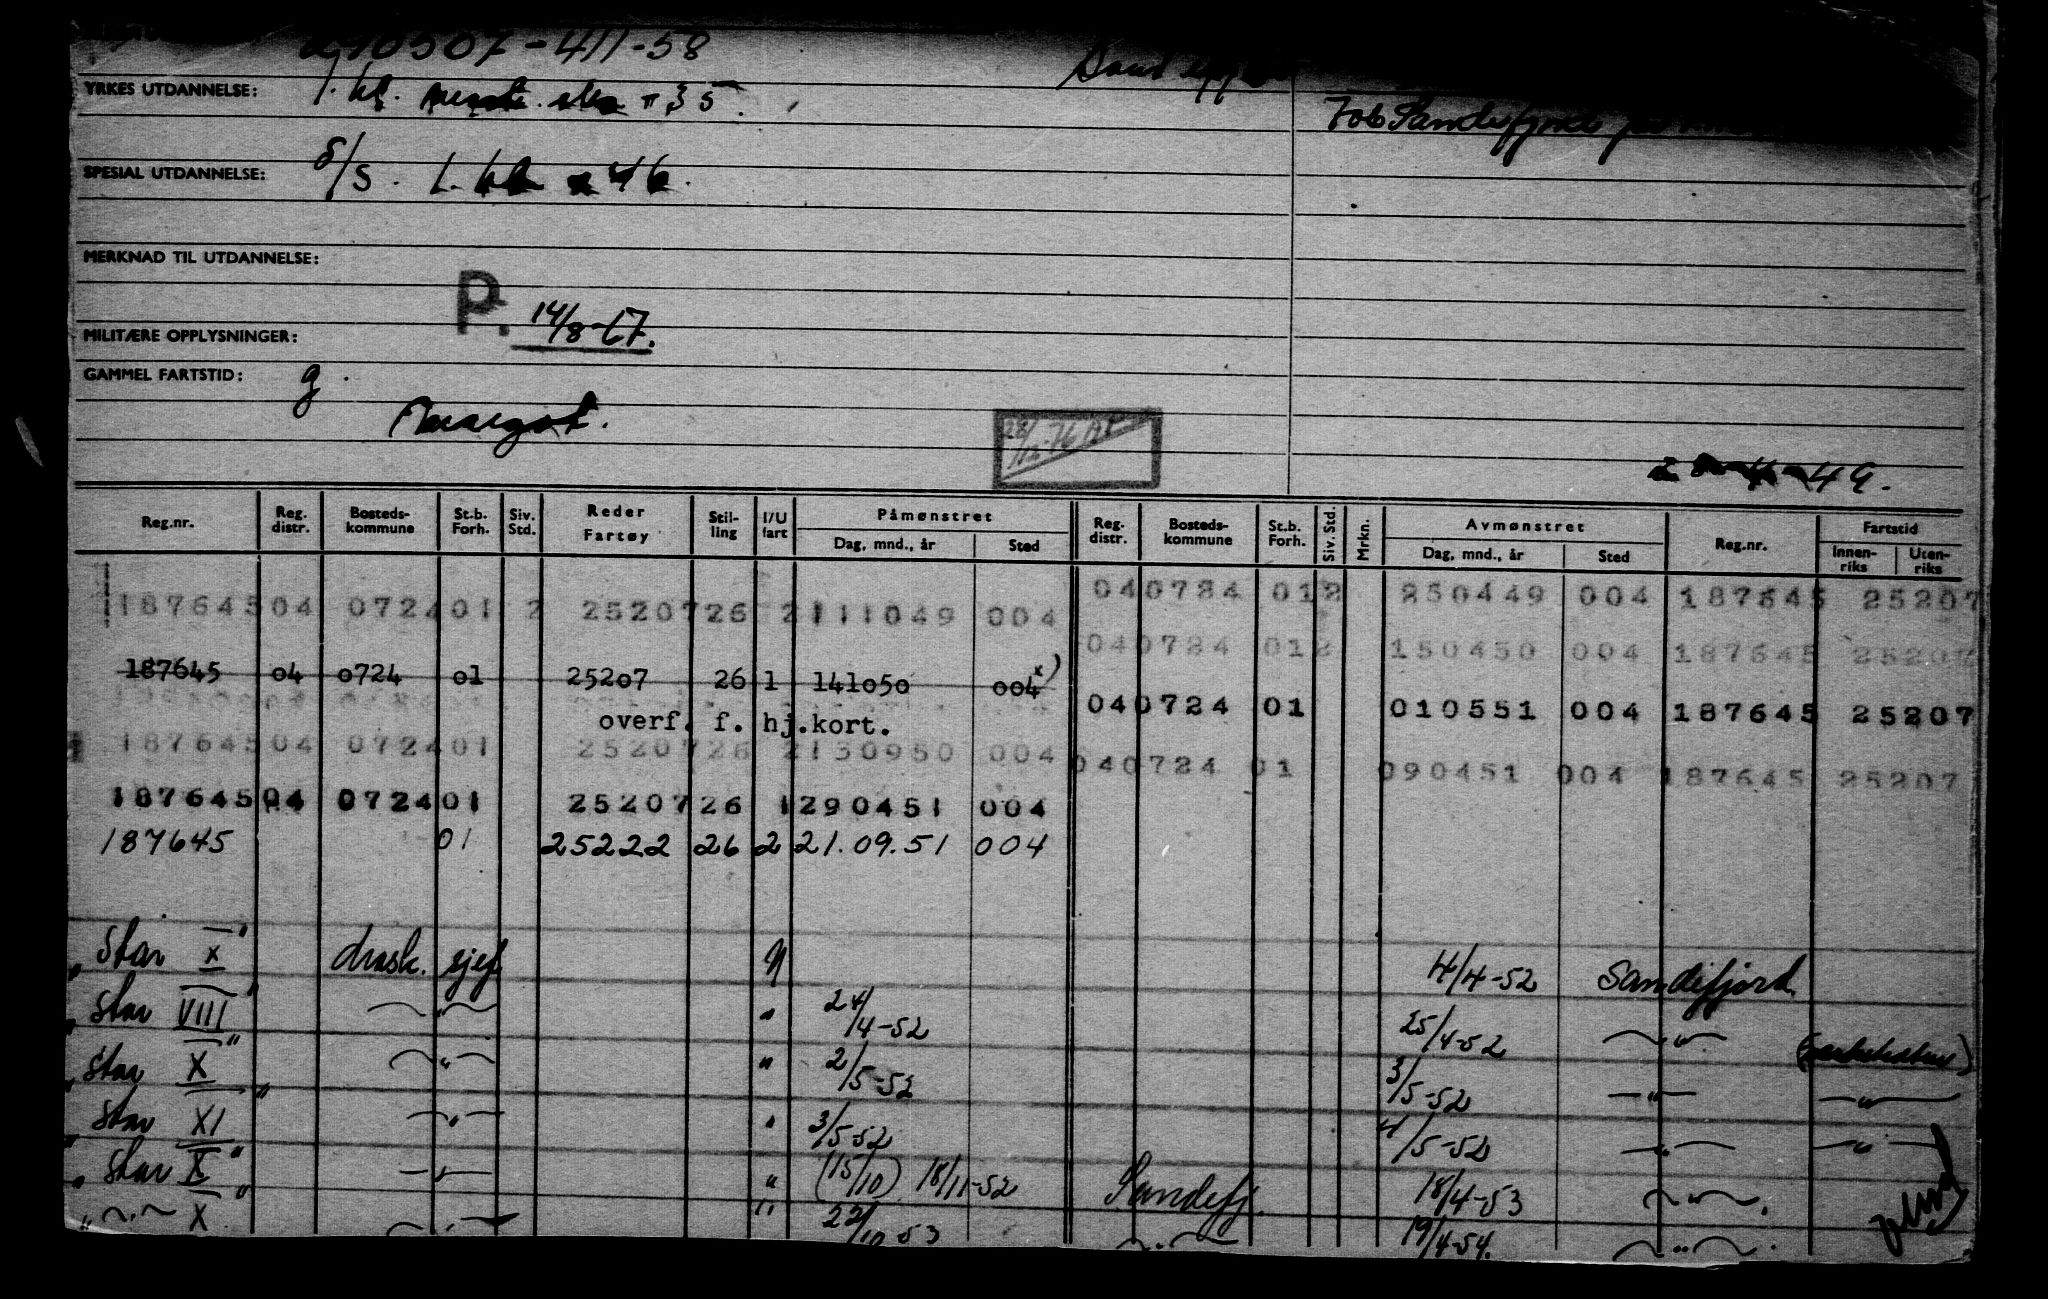 10507-411-58
YRKES UTDANNELSE: 1. kl. 35.
SPESIAL UTDANNELSE: S/S. 1. kl 46.
MERKNAD TIL UTDANNELSE:
P. 14/8-67.
MILITÆRE OPPLYSNINGER:
GAMMEL FARTSTID: g.
Margot.
49.
Reg.nr. Reg. distr. Bosteds- kommune St.b. Forh. Siv. Std. Reder Fartøy Stil- ling I/U fart Påmønstret Dag, mnd., år Sted Reg. distr. Bosteds- kommune St.b. Forh. Siv. Std. Mrkn. Avmønstret Dag, mnd., år Sted Reg.nr. Fartstid Innen- riks Uten- riks
187645 04 0724 01 2 25207 26 2 111049 004 04 0724 01 2 250449 004 187645 25207
04 0724 01 2 150450 004 187645 25207
187645 04 0724 01 25207 26 1 141050 004 x)
04 0724 01 010551 004 187645 25207
overf. f. hj.kort.
187645 04 0724 01 25207 26 2 130950 004 04 0724 01 090451 004 187645 25207
187645 04 0724 01 25207 26 1 290451 004
187645 01 25222 26 2 21.09.51 004
"Star X" 4/4-52 Sandefjord
"Star VIII" — " — " 24/4-52 25/4-52 — " —
"Star X" — " — " 2/5-52 3/5-52 — " — — " —
"Star XI" — " — " 3/5-52 4/5-52 — " — — " —
"Star X" — " — " (15/10) 18/11-52 Sandefj. 18/4-53 — " —.
" — " — X" — " — " 22/10-53 — " — 19/4-54. — " —.